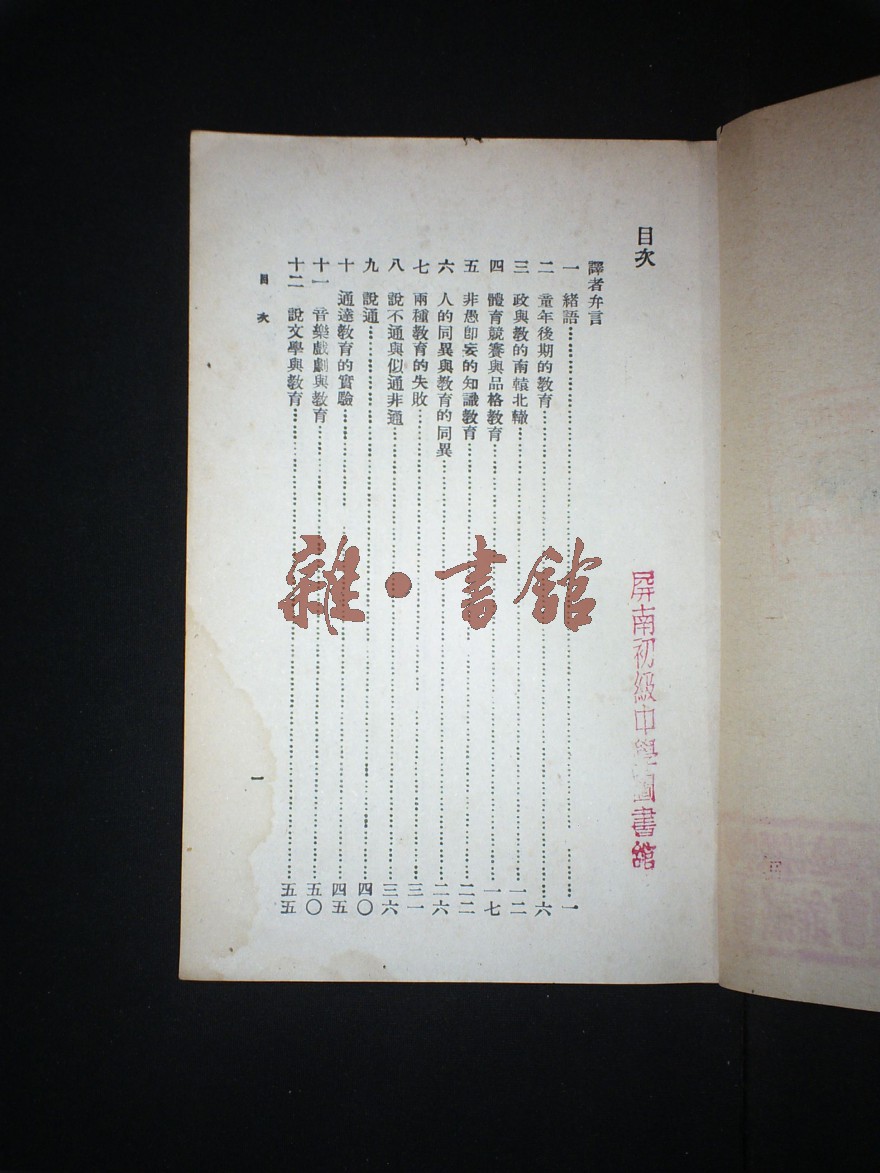 目次
譯者弁言
一 緒語……一
二 童年後期的教育……六
三 政與教的南轅北轍……一二
四 體育競賽與品格教育……一七
五 非愚卽妄的知識教育……二二
六 人的同異與教育的同異……二六
七 兩種教育的失敗……三一
八 說不通與似通非通……三六
九 說通……四〇
十 通達教育的實驗……四五
十一 音樂戲劇與教育……五〇
十二 說文學與教育……五五
目次
一
屏南初級中學圖書館
雜·書館